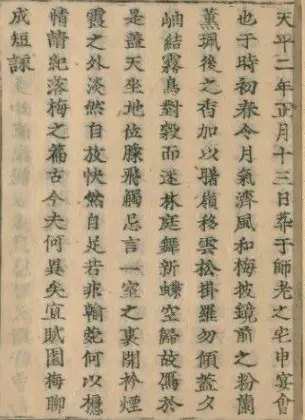 天平二年正月十三日萃于師老之宅申宴會
也于時初春令月氣濟風和梅披鏡前之粉蘭
薫珮後之香加以曙嶺移雲松掛羅勿傾盖夕
岫結霧鳥對縠而迷林庭舞新蝶空歸故鴈於
是盖天坐地位膝飛觴忘言一室之裏開衿煙
霞之外淡然自放快然自足若非翰苑何以攄
情請紀落梅之篇古今夫何異矣宜賦園梅聊
成短詠